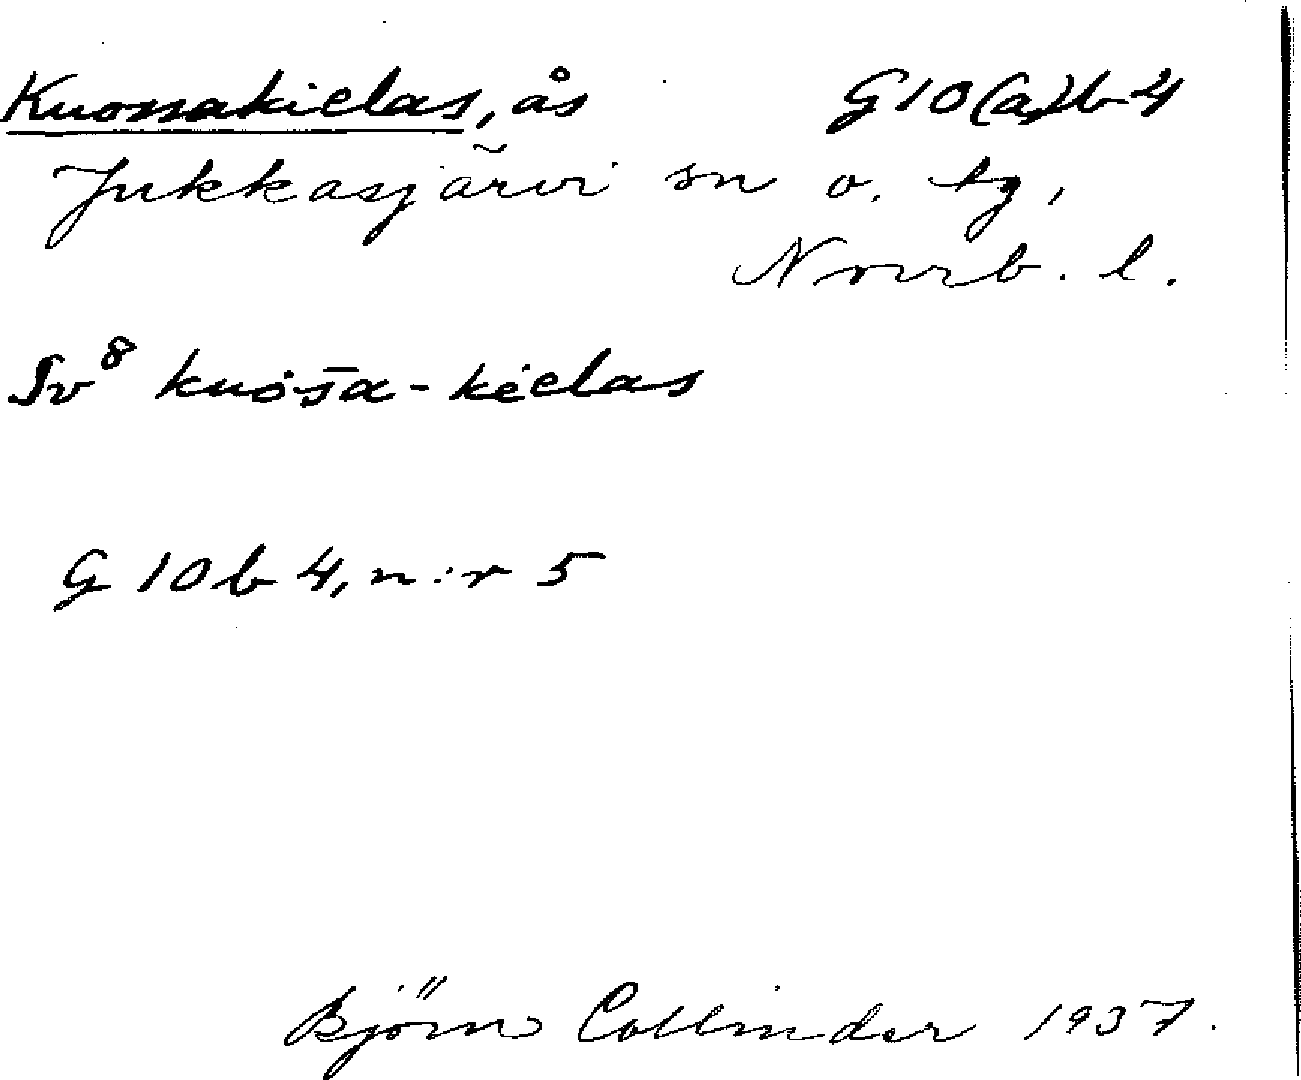 Kuossakielas, ås G10(a)b4
Jukkasjärvi sn o. tg,
Norrb. l.
Sv⁸ kuȯs̄a-kėelas
G 10 b 4, n:r 5
Björn Collinder 1937.